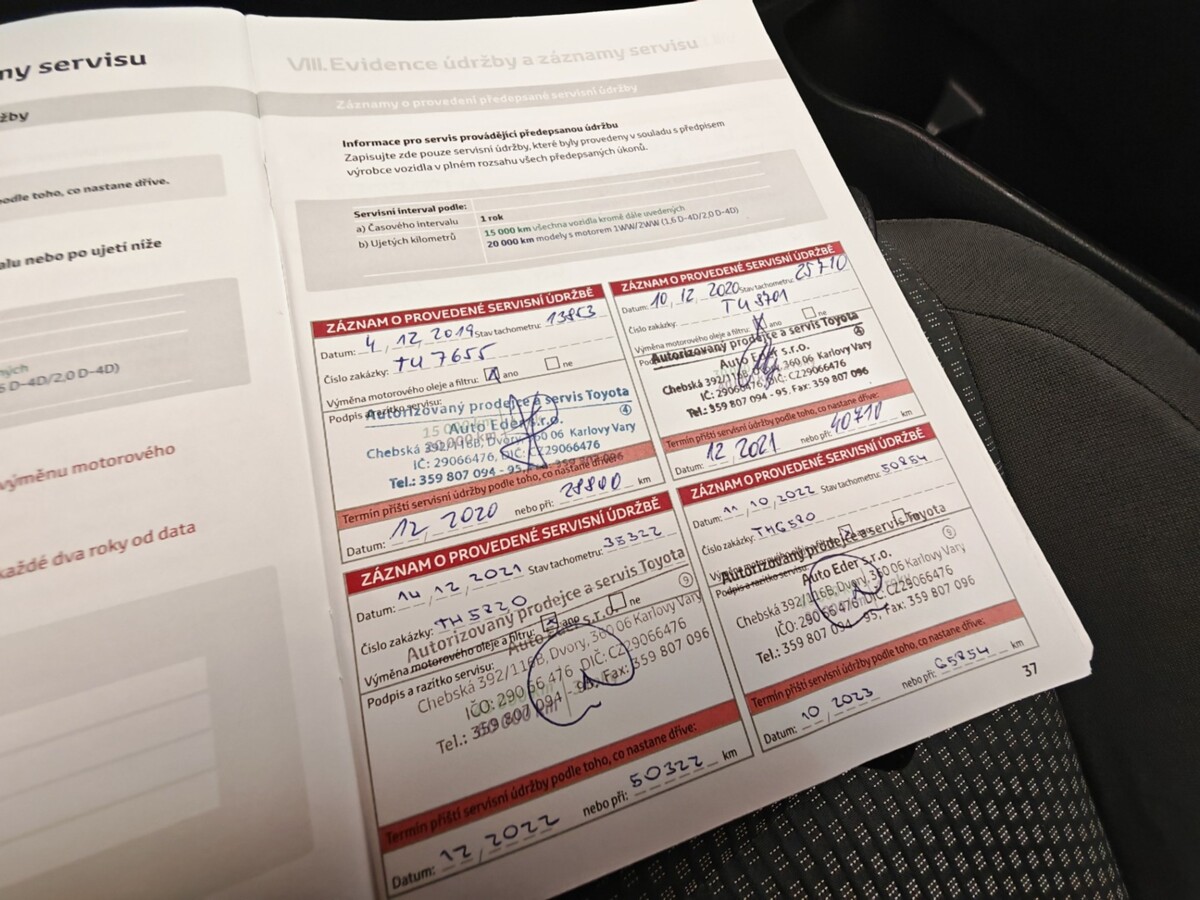 ny servisu
žby
podle toho, co nastane dříve.
alu nebo po ujetí níže
D–4D/2,0 D–4D)
výměnu motorového
každé dva roky od data
VIII. Evidence údržby a záznamy servisu
Záznamy o provedení předepsané servisní údržby
Informace pro servis provádějící předepsanou údržbu
Zapisujte zde pouze servisní údržby, které byly provedeny v souladu s předpisem
výrobce vozidla v plném rozsahu všech předepsaných úkonů.
Servisní interval podle:
a) Časového intervalu 1 rok
b) Ujetých kilometrů 15 000 km všechna vozidla kromě dále uvedených
20 000 km modely s motorem 1WW/2WW (1,6 D–4D/2,0 D–4D)
ZÁZNAM O PROVEDENÉ SERVISNÍ ÚDRŽBĚ
Datum: 4, 12, 2019 Stav tachometru: 13863
Číslo zakázky: TU 7655
Výměna motorového oleje a filtru: ano ne
Podpis a razítko servisu:
Autorizovaný prodejce a servis Toyota
Auto Eder s.r.o. 4
Chebská 392/116B, Dvory, 360 06 Karlovy Vary
IČ: 29066476, DIČ: CZ29066476
Tel.: 359 807 094 - 95, Fax: 359 807 096
Termín příští servisní údržby podle toho, co nastane dříve:
Datum: 12, 2020 nebo při: 28800 km
ZÁZNAM O PROVEDENÉ SERVISNÍ ÚDRŽBĚ
Datum: 10, 12, 2020 Stav tachometru: 25710
Číslo zakázky: TU 8701
Výměna motorového oleje a filtru: ano ne
Autorizovaný prodejce a servis Toyota
Auto Eder s.r.o. 4
Chebská 392/116B, 360 06 Karlovy Vary
IČ: 29066476, DIČ: CZ29066476
Tel.: 359 807 094 - 95, Fax: 359 807 096
Termín příští servisní údržby podle toho, co nastane dříve:
Datum: 12, 2021 nebo při: 40710 km
ZÁZNAM O PROVEDENÉ SERVISNÍ ÚDRŽBĚ
Datum: 14, 12, 2021 Stav tachometru: 35322
Číslo zakázky: TH 5220
Autorizovaný prodejce a servis Toyota
Výměna motorového oleje a filtru: ano ne
Auto Eder s.r.o. 9
Podpis a razítko servisu:
Chebská 392/116B, Dvory, 360 06 Karlovy Vary
IČO: 290 66 476, DIČ: CZ29066476
Tel.: 359 807 094 - 95, Fax: 359 807 096
Termín příští servisní údržby podle toho, co nastane dříve:
Datum: 12, 2022 nebo při: 50322 km
ZÁZNAM O PROVEDENÉ SERVISNÍ ÚDRŽBĚ
Datum: 11, 10, 2022 Stav tachometru: 50854
Číslo zakázky: TH6580
Autorizovaný prodejce a servis Toyota
Podpis a razítko servisu:
Auto Eder s.r.o. 9
Chebská 392/116B, Dvory, 360 06 Karlovy Vary
IČO: 290 66 476, DIČ: CZ29066476
Tel.: 359 807 094 - 95, Fax: 359 807 096
Termín příští servisní údržby podle toho, co nastane dříve:
Datum: 10, 2023 nebo při: 65854 km
37